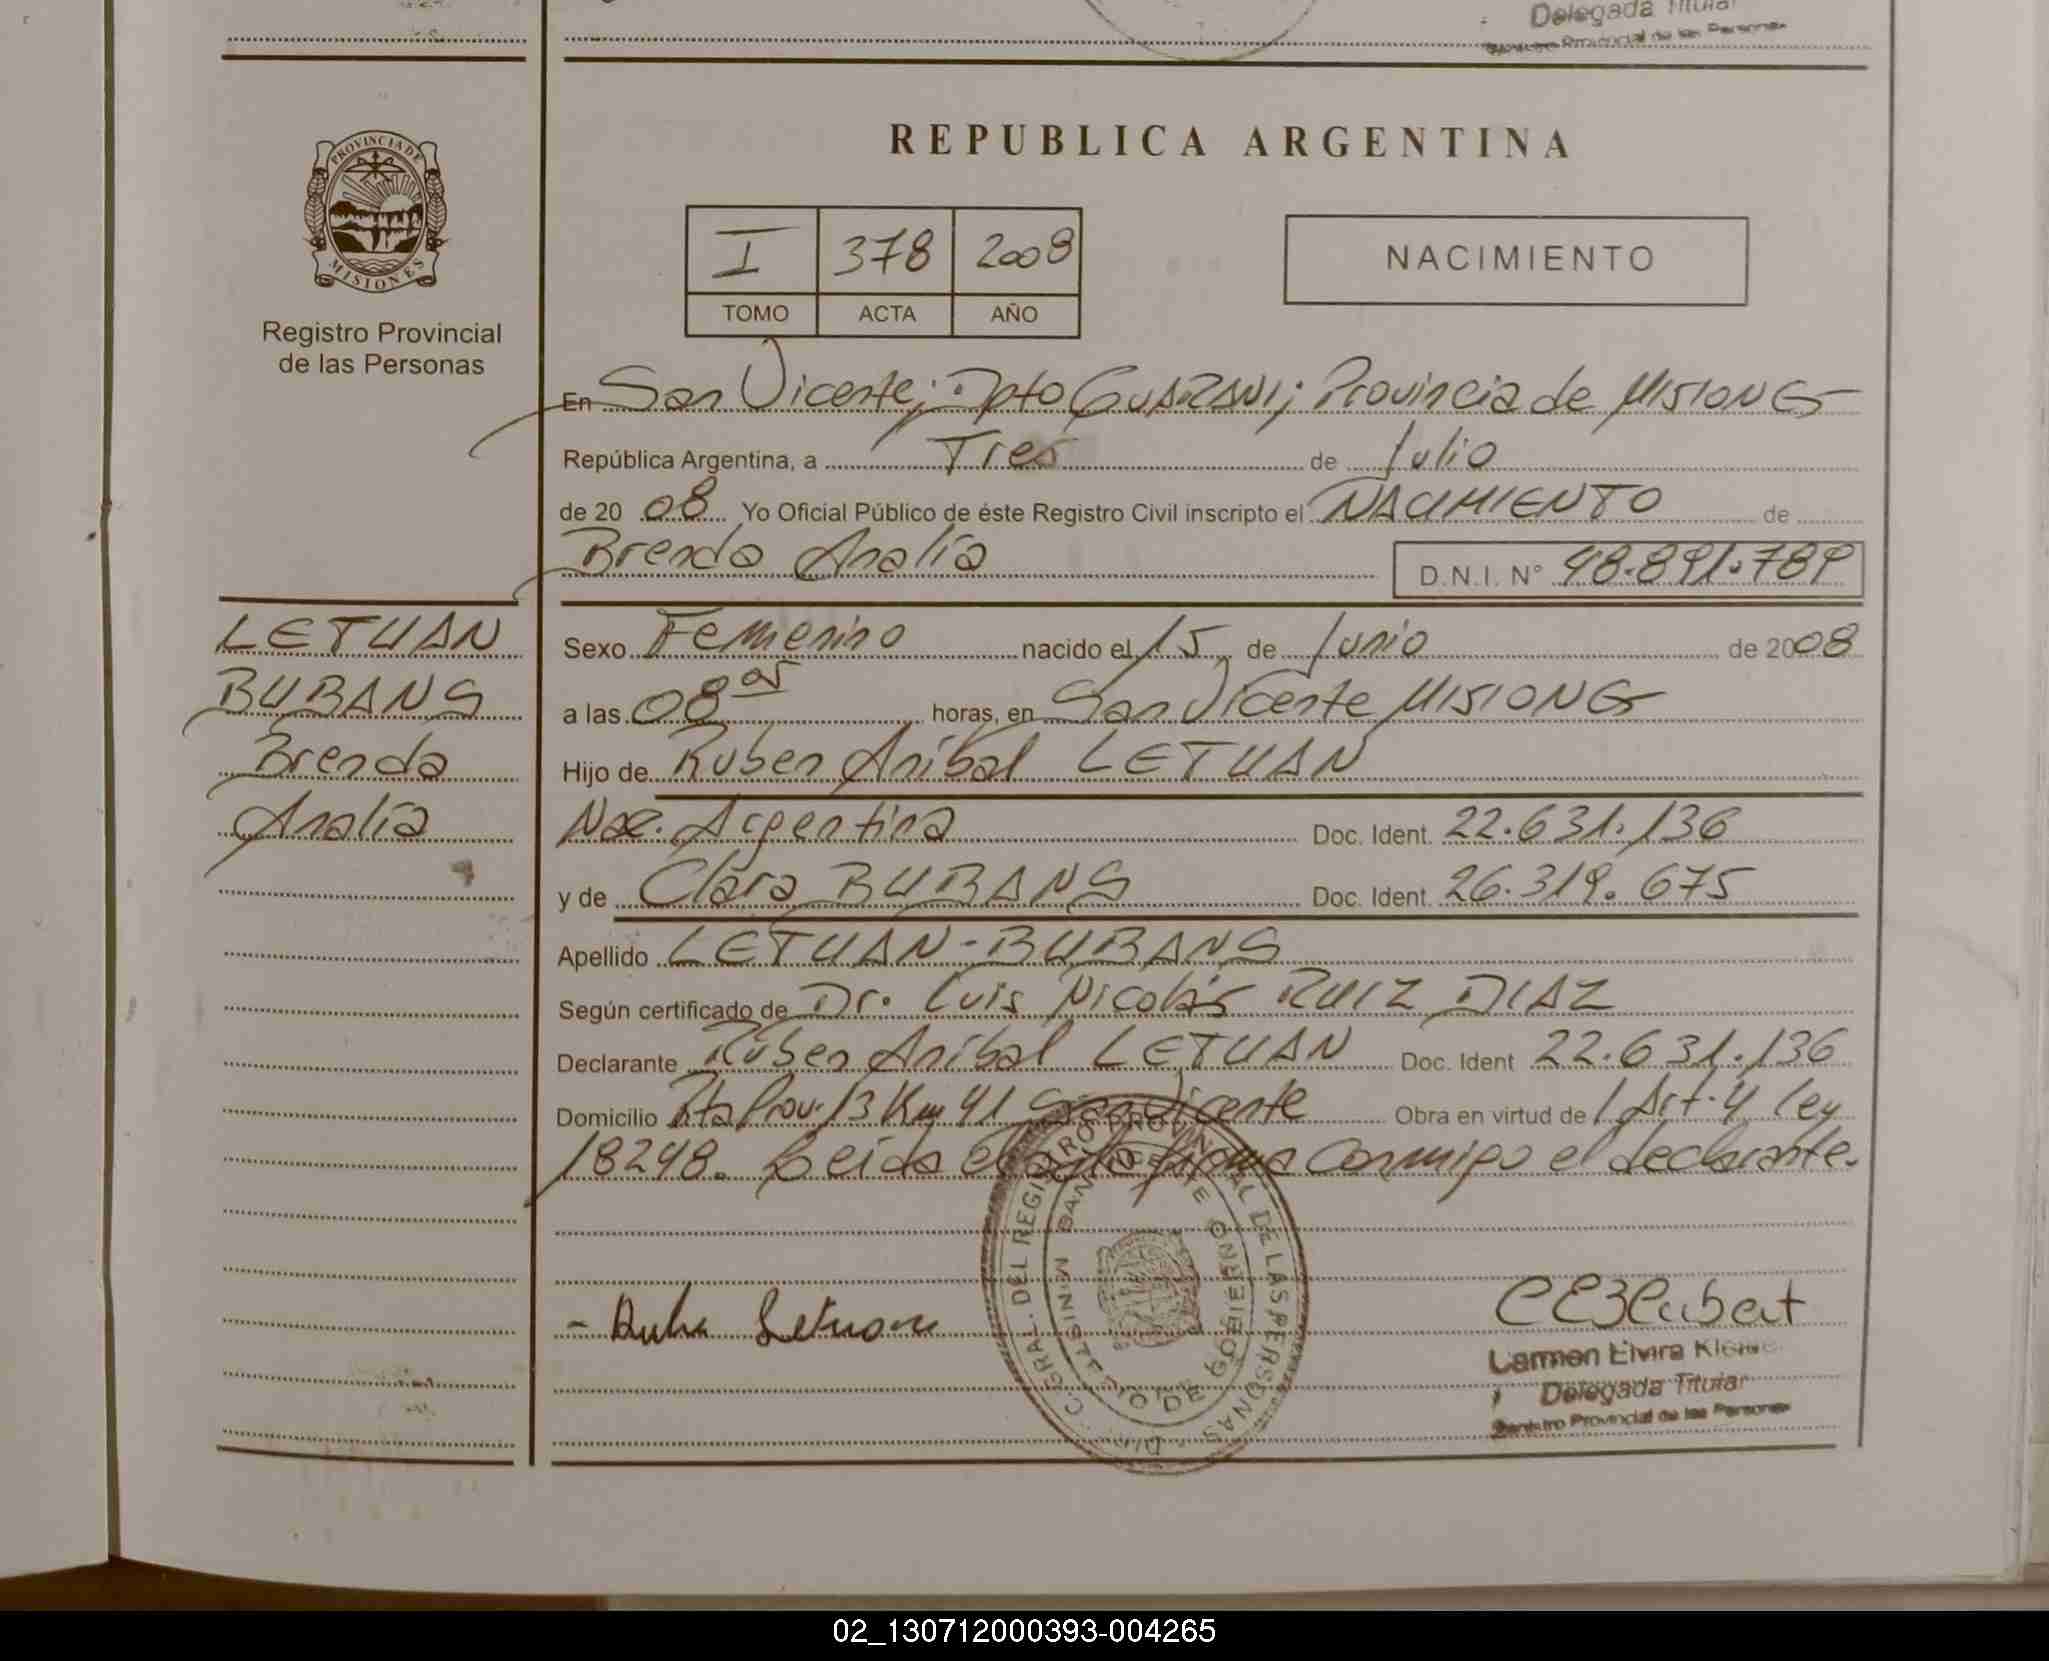 Delegada Titular
Registro Provincial de las Personas
PROVINCIA DE
MISIONES
Registro Provincial
de las Personas
REPUBLICA ARGENTINA
I 378 2008
TOMO ACTA AÑO
NACIMIENTO
En San Vicente; Dpto GUARANI; Provincia de MISIONES
República Argentina, a Tres de Julio
de 20 08 Yo Oficial Público de éste Registro Civil inscripto el NACIMIENTO de
Brenda Analía D.N.I. N° 48.891.789
LETUAN
BUBANS
Brenda
Analía
Sexo Femenino nacido el 15 de Junio de 2008
a las 08 05 horas, en San Vicente MISIONES
Hijo de Ruben Aníbal LETUAN
Nac. Argentina Doc. Ident. 22.631.136
y de Clara BUBANS Doc. Ident. 26.319.675
Apellido LETUAN-BUBANS
Según certificado de Dr. Luis Nicolás RUIZ DIAZ
Declarante Ruben Aníbal LETUAN Doc. Ident 22.631.136
Domicilio Rta Prov. 13 Km 41 San Vicente Obra en virtud de 1 Art. 4 ley
18248. Leída el acta firma conmigo el declarante.
DEL REGISTRO PROVINCIAL DE LAS PERSONAS
MINISTERIO DE GOBIERNO
Carmen Elvira
Delegada Titular
Registro Provincial de las Personas
02_130712000393-004265